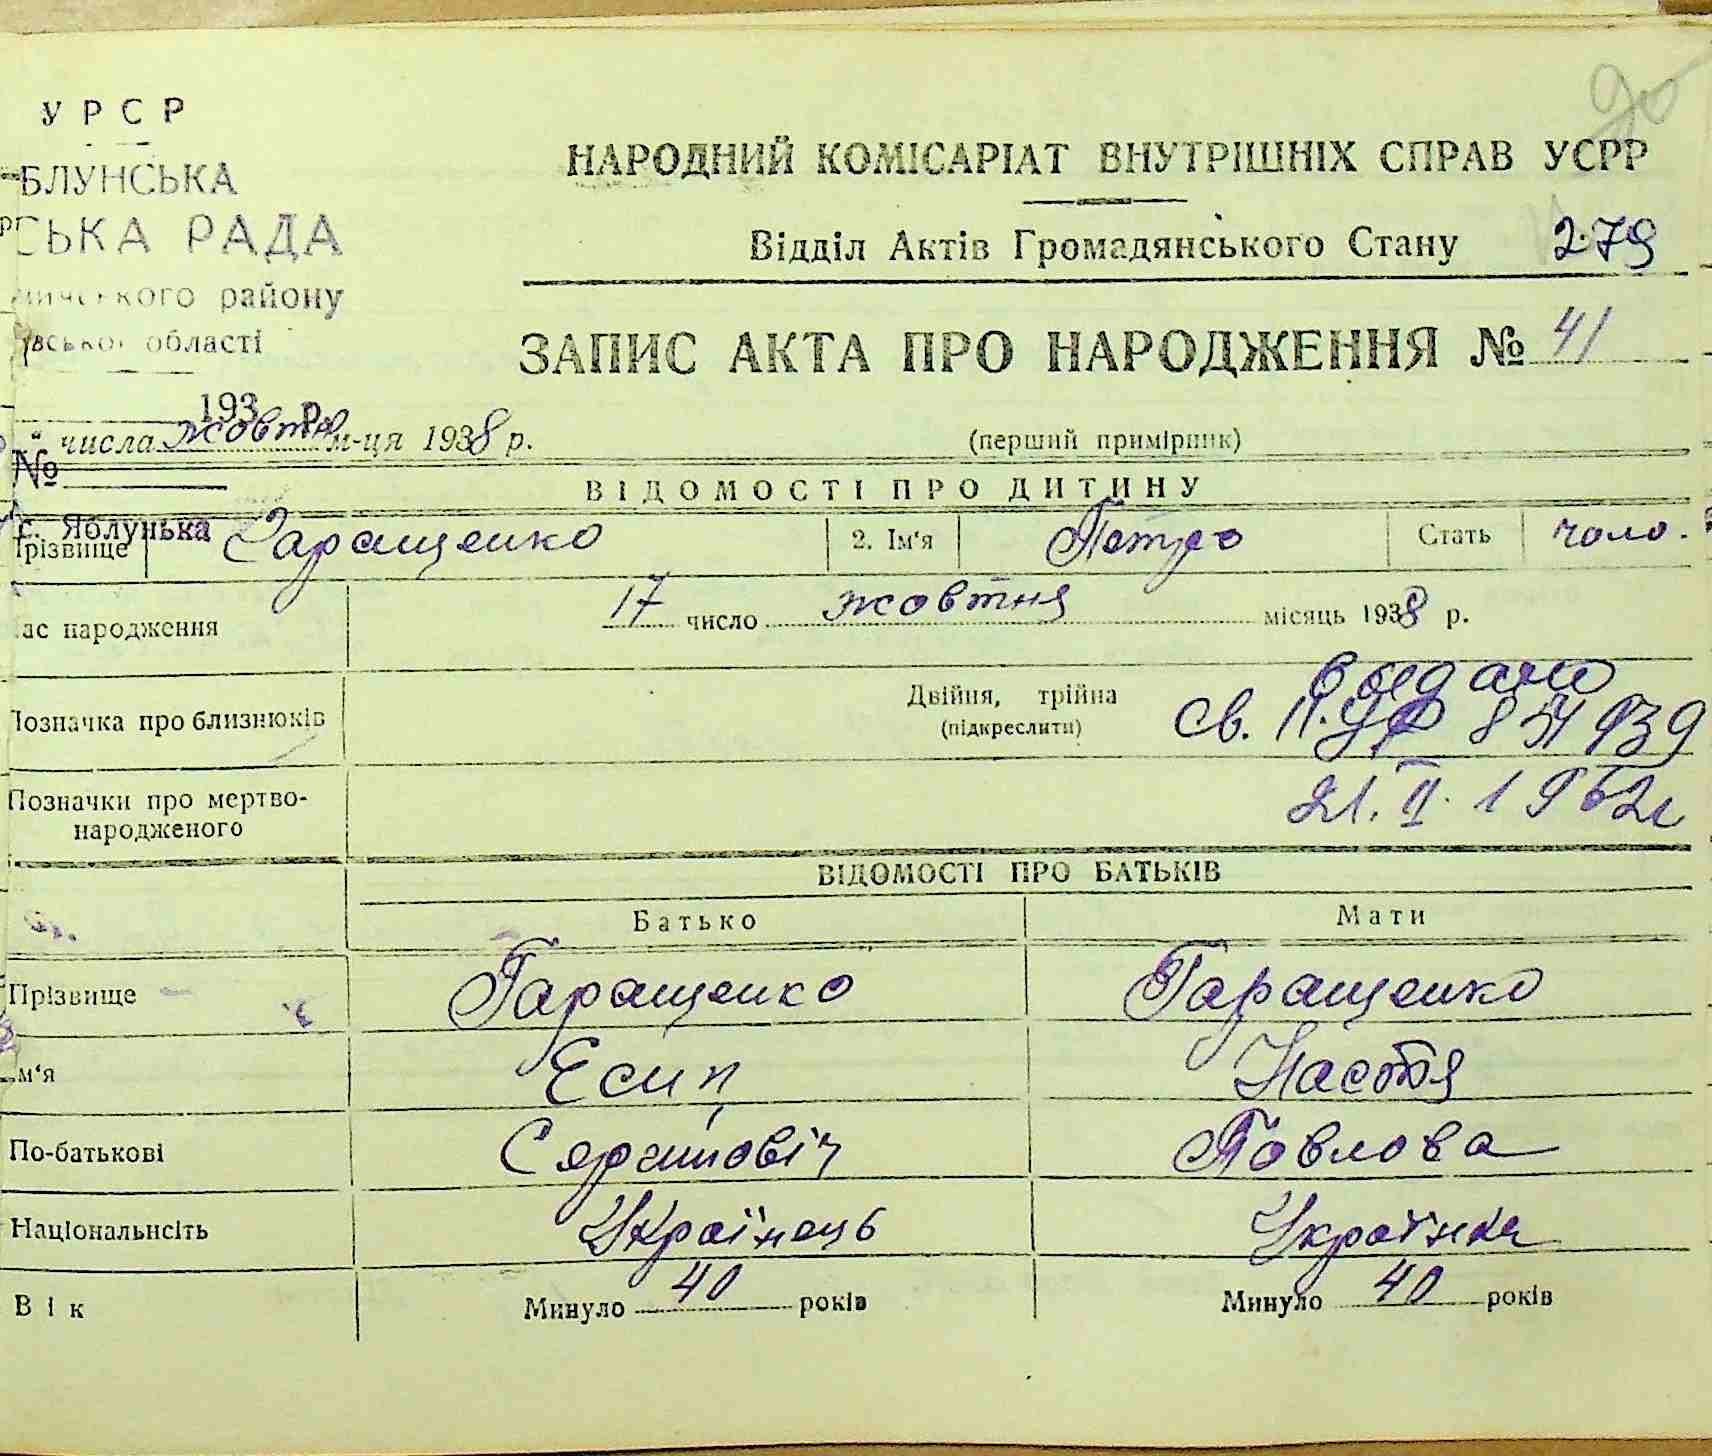 УРСР
БЛУНСЬКА
СЬКА РАДА
району
області
193 р.
НАРОДНИЙ КОМІСАРІАТ ВНУТРІШНІХ СПРАВ УСРР
Відділ Актів Громадянського Стану 279
ЗАПИС АКТА ПРО НАРОДЖЕННЯ № 41
числа жовтня м-ця 1938 р. (перший примірник)
№
ВІДОМОСТІ ПРО ДИТИНУ
с. Яблунька
Прізвище Гаращенко 2. Ім'я Петро Стать чоло.
час народження 17 число жовтня місяць 1938 р.
Позначка про близнюків Двійня, трійна (підкреслити)
св. 
Позначки про мертво-народженого 21.II.1962г
ВІДОМОСТІ ПРО БАТЬКІВ
Батько Мати
Прізвище Гаращенко Гаращенко
м'я Есип Настя
По-батькові Павлова
Національнсіть Українець Українка
Вік Минуло 40 років Минуло 40 років